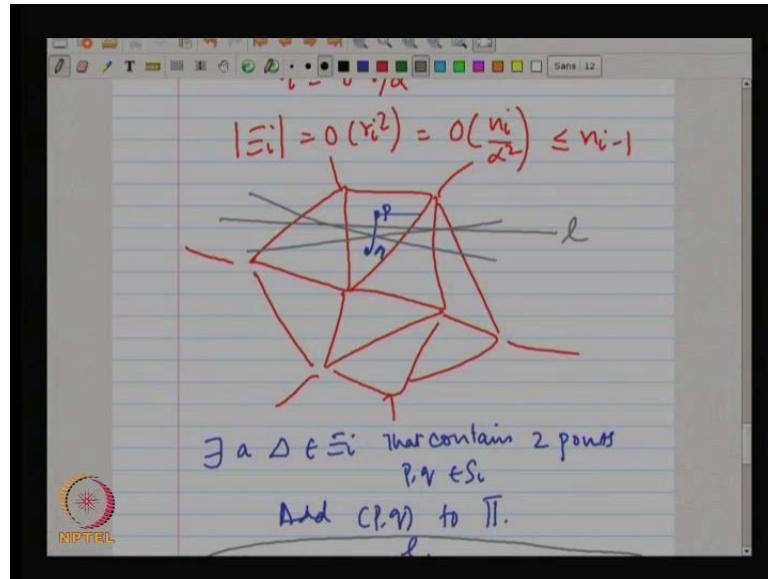 T
Sans 12
|Ξi| = O(ri²) = O(ni/α²) ≤ ni-1
P
l
q
∃ a Δ ∈ Ξi that contains 2 points
P,q ∈ Si
Add (P,q) to Π.
l
NPTEL